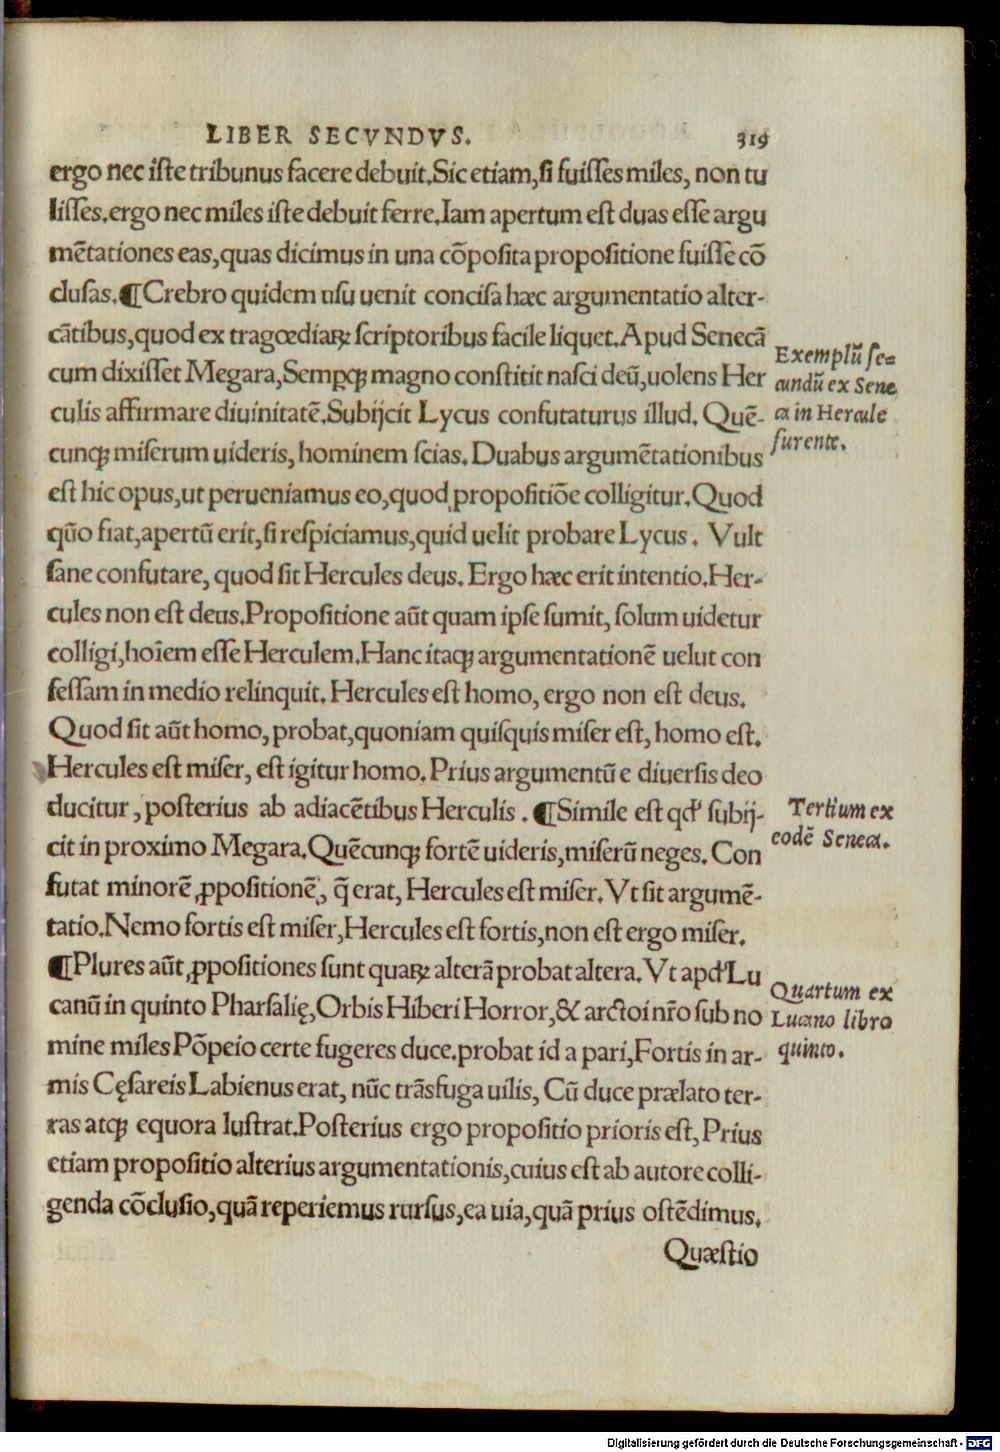 LIBER SECVNDVS. 319
ergo nec iſte tribunus facere debuit.Sic etiam,ſi fuiſſes miles, non tu
liſſes.ergo nec miles iſte debuit ferre.Iam apertum eſt duas eſſe argu
mētationes eas,quas dicimus in una cōpoſita propoſitione fuiſſe cō
cluſas.¶Crebro quidem uſu uenit conciſa hæc argumentatio alter-
cātibus,quod ex tragœdiaꝝ ſcriptoribus facile liquet.Apud Senecā
cum dixiſſet Megara,Sempꝙ magno conſtitit naſci deū,uolens Her
culis affirmare diuinitatē.Subijcit Lycus confutaturus illud. Quē-
cunqꝫ miſerum uideris, hominem ſcias. Duabus argumētationibus
eſt hic opus,ut perueniamus eo,quod ꝓpoſitiōe colligitur.Quod
qūo fiat,apertū erit,ſi reſpiciamus,quid uelit probare Lycus. Vult
ſane confutare, quod ſit Hercules deus. Ergo hæc erit intentio.Her-
cules non eſt deus.Propoſitione aūt quam ipſe ſumit, ſolum uidetur
colligi,hoīem eſſe Herculem.Hanc itaqꝫ argumentationē uelut con
feſſam in medio relinquit. Hercules eſt homo, ergo non eſt deus.
Quod ſit aūt homo, probat,quoniam quiſquis miſer eſt, homo eſt.
Hercules eſt miſer, eſt igitur homo. Prius argumentū e diuerſis deo
ducitur, poſterius ab adiacētibus Herculis. ¶Simile eſt qd' ſubij-
cit in proximo Megara.Quēcunqꝫ fortē uideris,miſerū neges. Con
futat minorē ꝓpoſitionē, q̄ erat, Hercules eſt miſer. Vt ſit argumē-
tatio.Nemo fortis eſt miſer,Hercules eſt fortis,non eſt ergo miſer.
¶Plures aūt ꝓpoſitiones ſunt quaꝝ alterā probat altera. Vt apd' Lu
canū in quinto Pharſalię,Orbis Hiberi Horror,& arctoi nr̄o ſub no
mine miles Pōpeio certe fugeres duce.probat id a pari,Fortis in ar-
mis Cęſareis Labienus erat, nūc trāsfuga uilis, Cū duce prælato ter-
ras atqꝫ equora luſtrat.Poſterius ergo propoſitio prioris eſt,Prius
etiam propoſitio alterius argumentationis,cuius eſt ab autore colli-
genda cōcluſio,quā reperiemus rurſus,ea uia,quā prius oſtēdimus.
Quæſtio
Exemplū ſe=
cundū ex Sene
ca in Hercule
furente.
Tertium ex
eodē Seneca.
Quartum ex
Lucano libro
quinto.
Digitalisierung gefördert durch die Deutsche Forschungsgemeinschaft - DFG